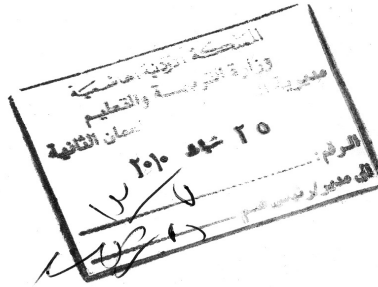 المملكة الأردنية الهاشمية
وزارة التربية والتعليم
مديرية عمان الثانية
٢٥ شباط ٢٠١٠
الرقم:
الى مدير / رئيس قسم